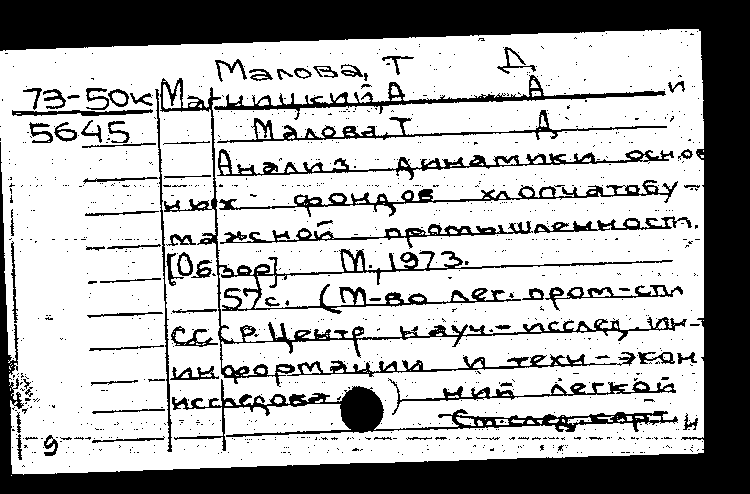 Малова, Т Д.
73-50к Магницкий, А А и
5645 Малова, Т Д
Анализ динамики основ
ных фондов хлопчатобу-
мажной промышленност.
[Обзор]. М., 1973.
57с. (М-во лег. пром-сти
СССР. Центр. науч.-исслед. ин-т
информации и техн-экон.
исследова ) ний легкой
См. след. карт. и
9